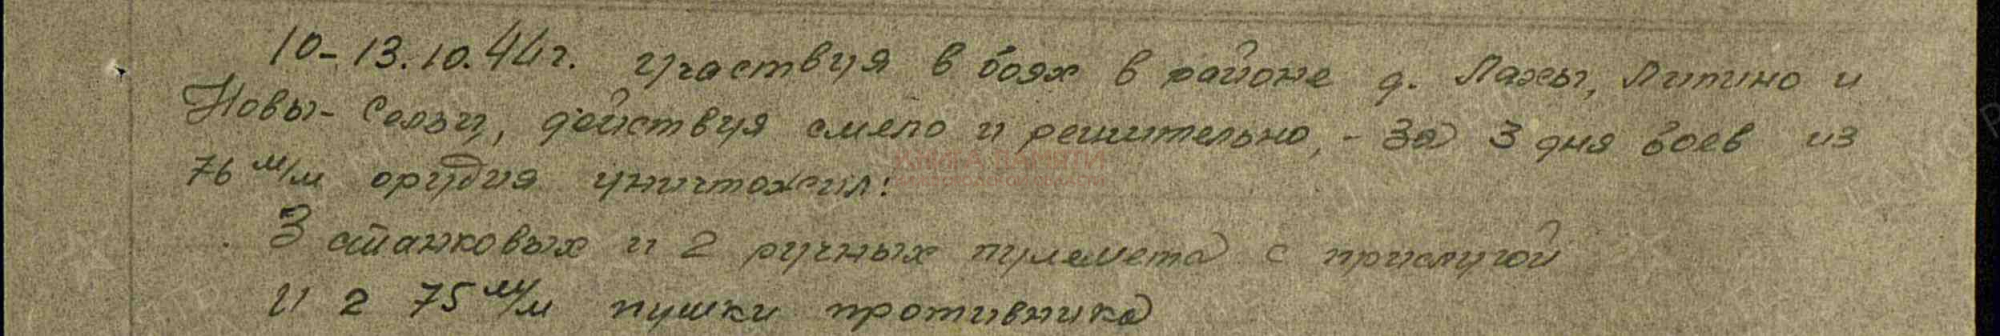 10-13.10.44г. участвуя в боях в районе д. Лахы, Питино и
Новы-Сельц, действуя смело и решительно, - За 3 дня боев из
76 м/м орудия уничтожил:
3 станковых и 2 ручных пулемета с прислугой
и 2 75 м/м пушки противника